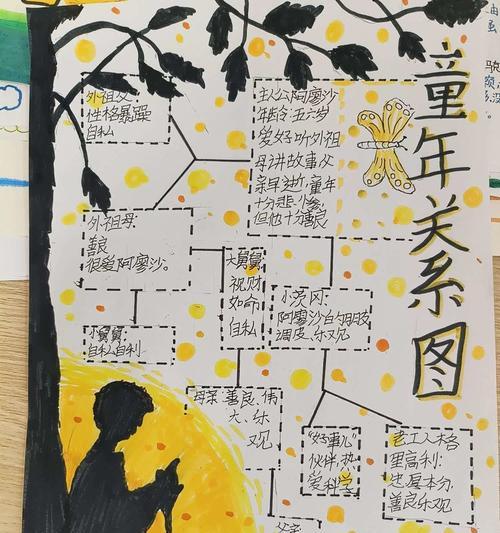 童年关系图
外祖父:
性格暴躁
自私
主人公阿廖沙
年龄:五六岁
爱好:听外祖
母讲故事父
亲早逝,童年
十分悲惨,
但他十分善良
外祖母:
善良
很爱阿廖沙。
大舅舅:
视财
如命
自私
小茨冈:
阿廖沙的朋友
调皮、乐观
小舅舅:
自私自利
母亲:善良、伟
大、乐
观
“好事儿”
伙伴,热
爱科学
老工人格
里高利:
忠厚本分,
善良乐观
父亲